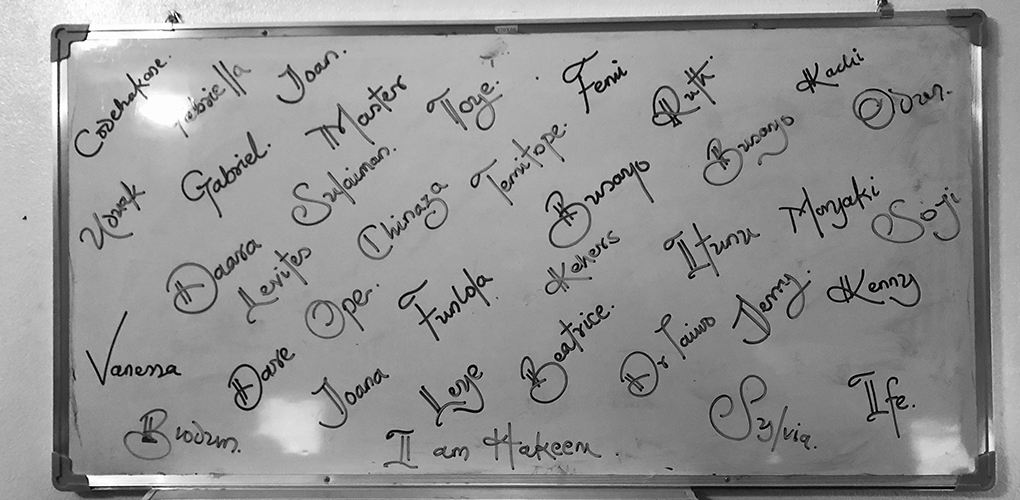 Gabriella
Joan.
Master
Toye.
Femi
Ruth.
Kachi
Gabriel.
Sulaiman.
Chinaza
Temitope.
Busayo
Busayo
Daara
Levites
Ope.
Funlola
Kehers
Ifunu
Monyaki
Soji
Vanessa
Dare
Joana
Leye
Beatrice.
Dr Taiwo
Jenny.
Kenny
Biodun.
I am Hakeem.
Sylvia.
Ife.